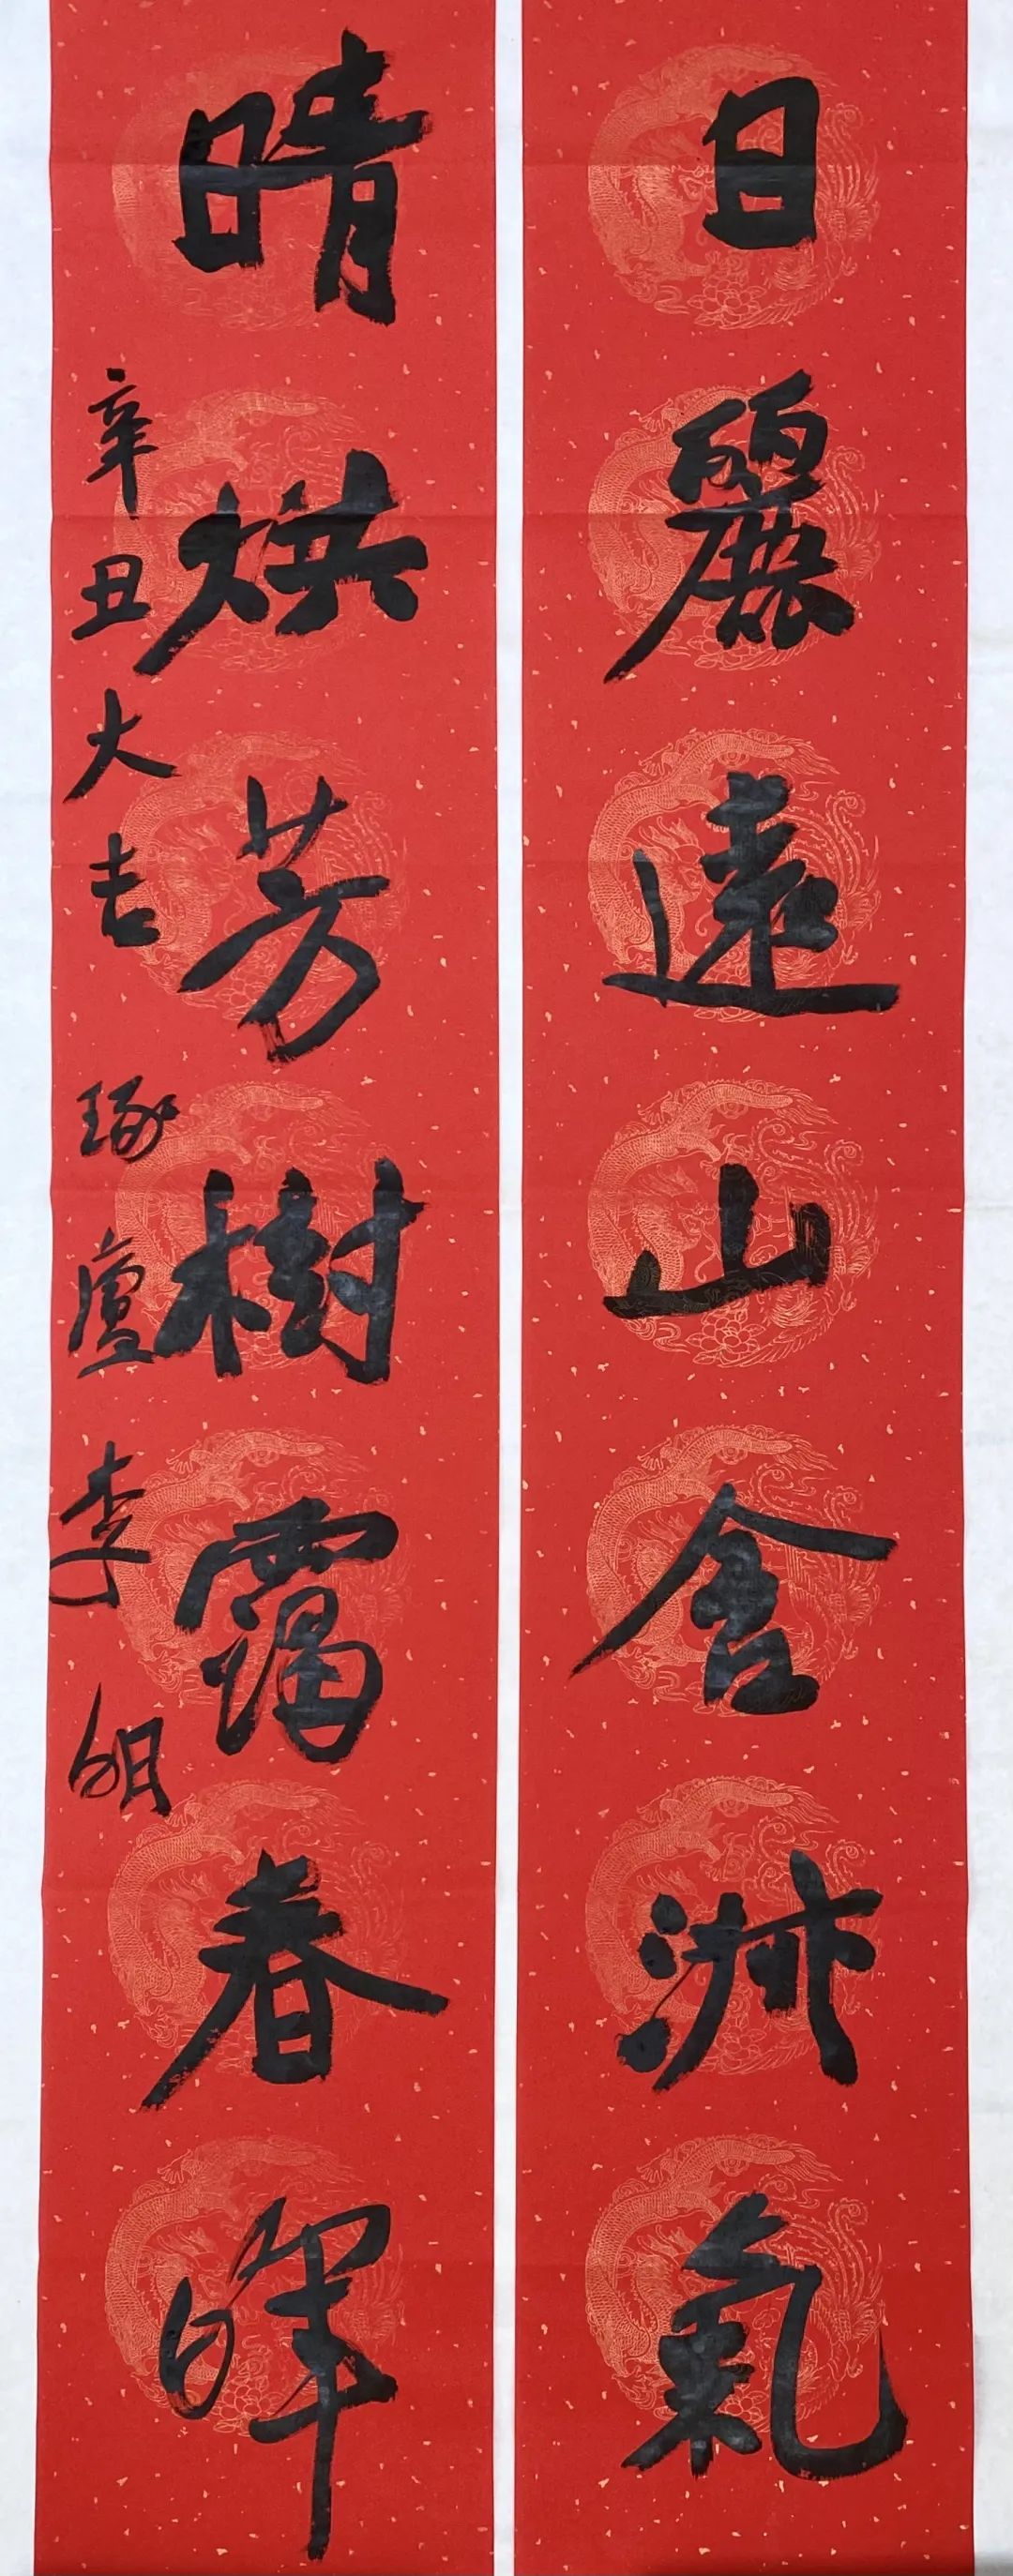 日麗遠山含淑氣
晴烘芳樹靄春暉
辛丑大吉 琢廬 李